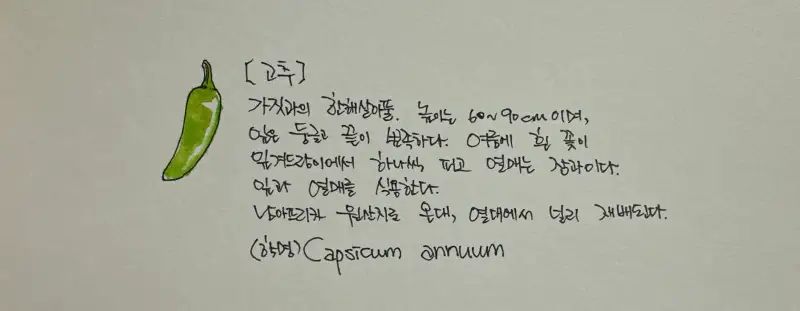 [고추]
가짓과의 한해살이풀. 높이는 60~90cm이며,
잎은 둥글고 끝이 뾰족하다. 여름에 흰 꽃이
잎겨드랑이에서 하나씩 피고 열매는 장과이다.
잎과 열매를 식용한다.
남아프리카 원산지로 온대, 열대에서 널리 재배된다.
(학명) Capsicum annuum